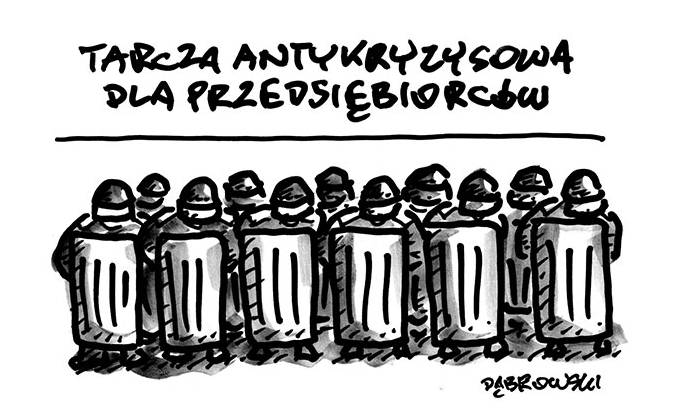 TARCZA ANTYKRYZYSOWA
DLA PRZEDSIĘBIORCÓW
DĄBROWSKI